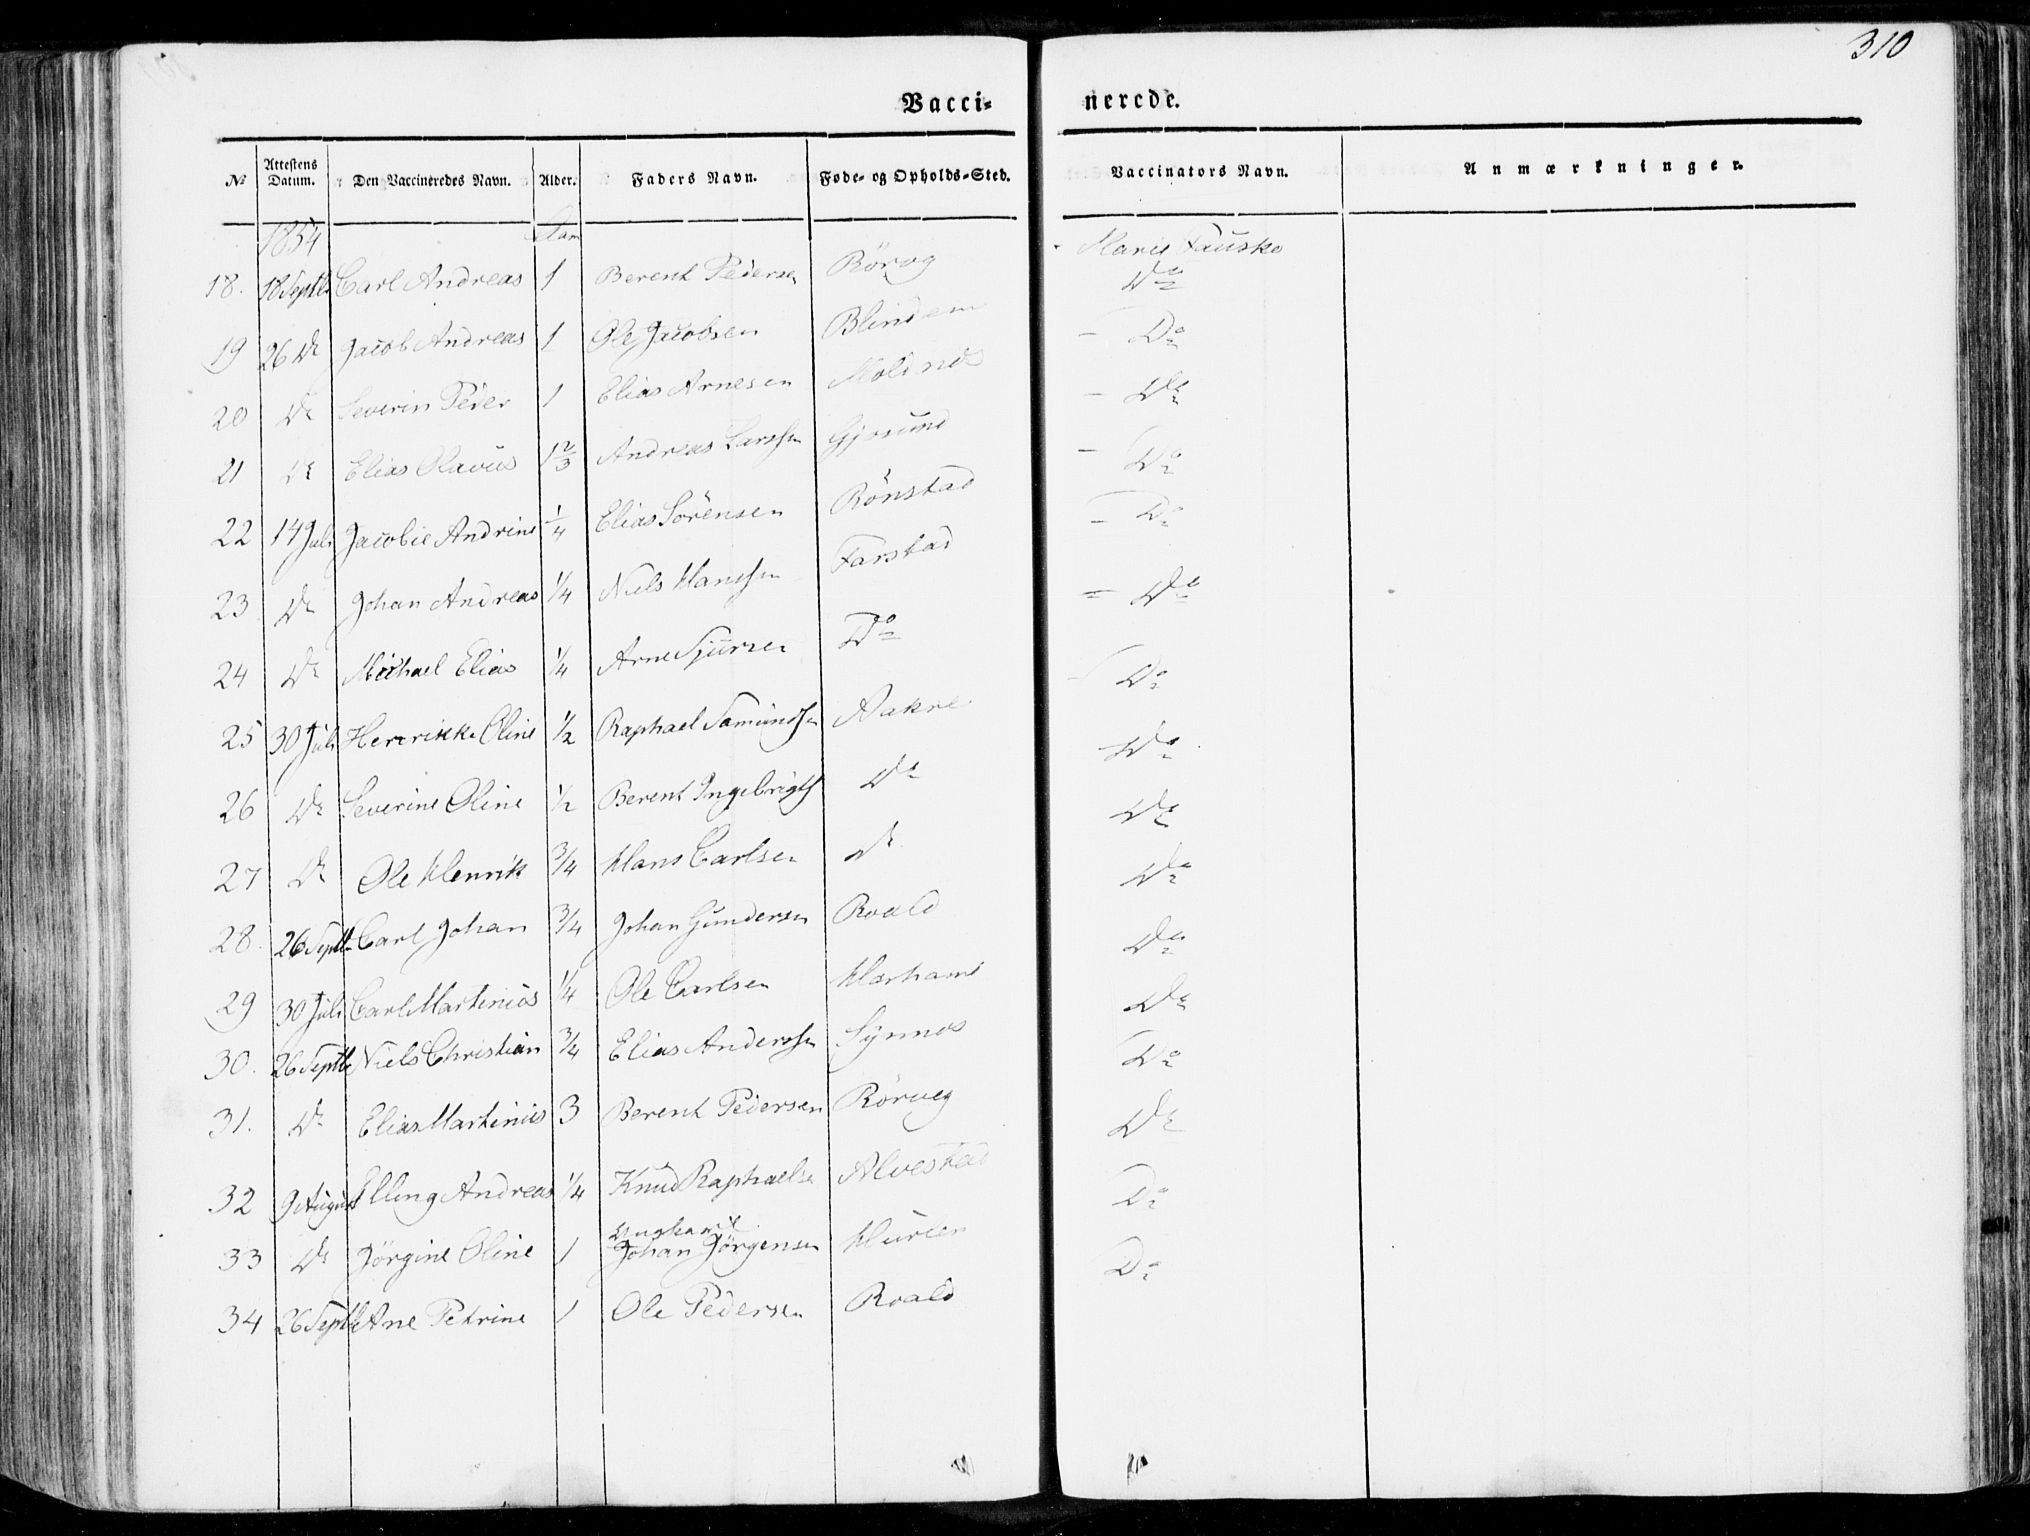 310
Vacci- nerede.
№ Attestens Datum. Den Vaccineredes Navn. Alder. Faders Navn. Føde- og Opholds-Sted. Vaccinators Navn. Anmærkninger.
1854 Marie Fauske
18. 18 Septb Carl Andreas 1 Berent Pedersen Rörvg Do
19 26 Do Jacob Andreas 1 Ole Jacobsen Blindem - Do
20 Do Severin Peder 1 Elias Arnesen Moldnes - Do
21 Do Elias Olavus 1 2/3 Andreas Larssen Gjøsund - Do
22 14 Juli Jacobie Andrine 1/4 Elias Sörensen Rönstad = Do
23 Do Johan Andreas 1/4 Niels Hanssen Farstad = Do
24 Do Michael Elias 1/4 Arne Sjursen Do - Do
25 30 Juli Henrikke Oline 1/2 Raphael Samundsn Aakre Do
26 Do Severine Oline 1/2 Berent Ingebrigts Do Do
27 Do Ole Henrik 3/4 Hans Carlsen Do Do
28. 26 Septb Carl Johan 3/4 Johan Gundersen Roald Do
29 30 Juli Carl Martinus 1/4 Ole Carlsen Harhams Do
30. 26 Septb Niels Christian 3/4 Elias Anderssn Synnes Do
31. Do Elias Martinus 3 Berent Pedersen Rörveg Do
32 9 August Elling Andreas 1/4 Knud Raphaelse Alvestad Do
33 Do Jörgine Oline 1 Ungkarl Johan Jörgensen Hurlen Do
34 26 Septb Ane Petrine 1 Ole Pedersen Roald